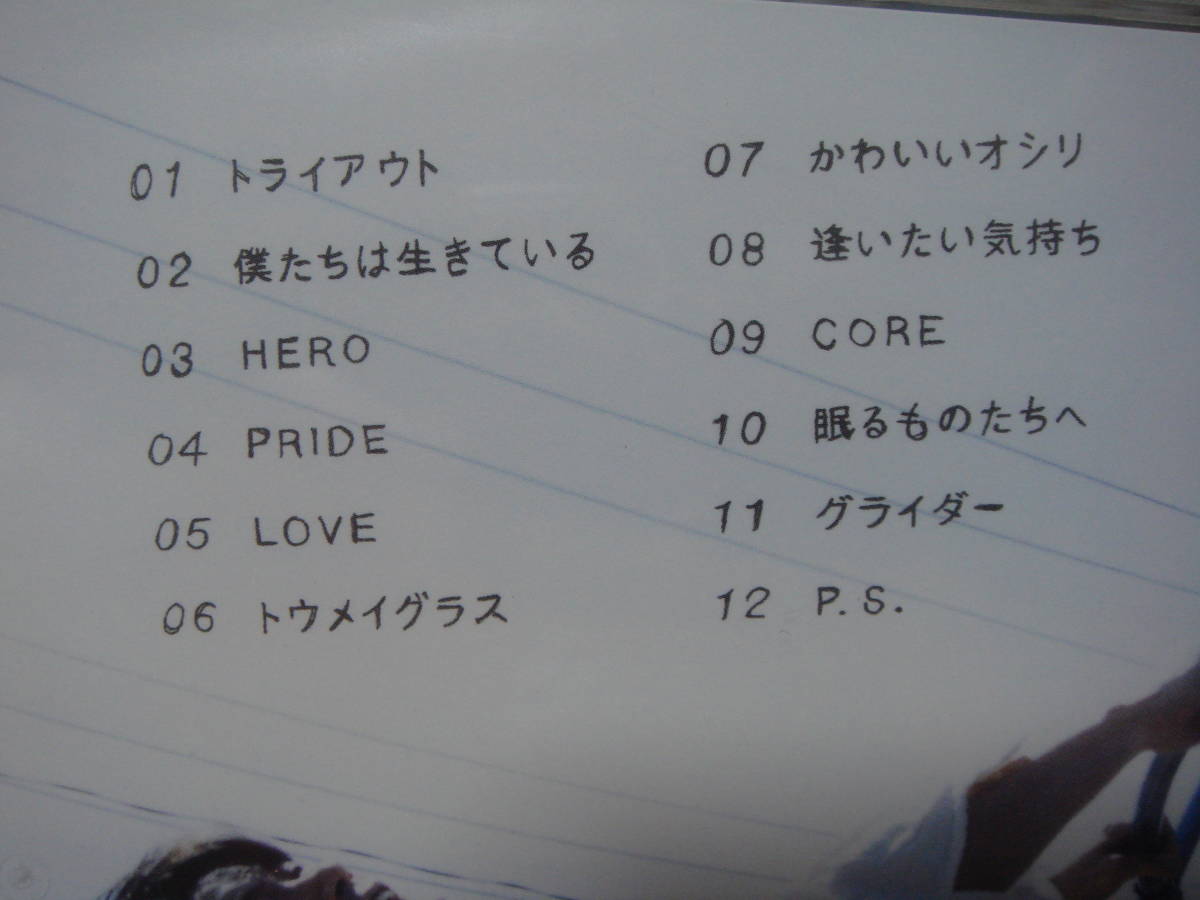 01 トライアウト
02 僕たちは生きている
03 HERO
04 PRIDE
05 LOVE
06 トウメイグラス
07 かわいいオシリ
08 逢いたい気持ち
09 CORE
10 眠るものたちへ
11 グライダー
12 P.S.